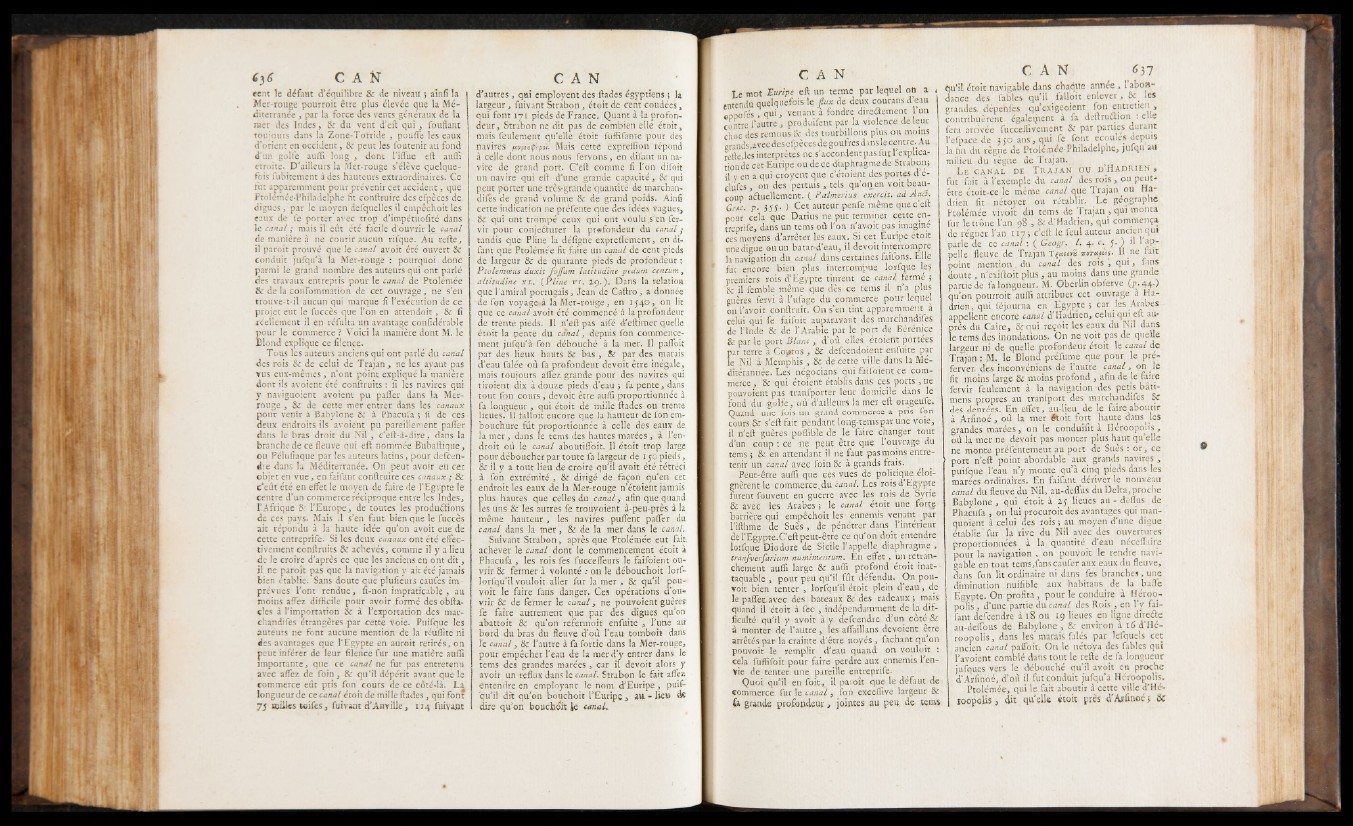 636 C A N
cent le défaut d'équilibre & de niveau ; ainsi la
Mer-rouge pourroit être plus élevée que la Mé-
diterranée , par la force des vents généraux de la
mer des Indes, & du vent d'est qui , soufflant
toujours dans la Zone-Torride , pousse les eaux
d'orient en occident, & peut les soutenir au fond
d'un golfe aussi long , dont l'issue est aussi
étroite. D'ailleurs la Mer-rouge s'élève quelque-
fois subitement à des hauteurs extraordinaires. Ce
fut apparemment pour prévenir cet accident , que
Ptolémée-Philadelphe fit construire des espèces de
digues , par le moyen desquelles il empêchoit les
eaux de se porter avec trop d'impétuosité dans
le canal ; mais il eût été facile d'ouvrir le canal
de manière à ne courir aucun risque. Au reste,
il paroît prouvé que le canal avoit été ouvert &
conduit jusqu'à la Mer-rouge : pourquoi donc
parmi le grand nombre des auteurs qui ont parlé
des travaux entrepris pour le canal de Ptolémée
& de la consommation de cet ouvrage, ne s'en
trouve-t-il aucun qui marque si l'exécution de ce
projet eut le succès que l'on en attendoit , & si
réellement il en résulta un avantage considérable
pour le commerce ? Voici la manière dont M. le
Blond explique ce silence.
Tous les auteurs anciens qui ont parlé du canal
des rois & de celui de Trajan , ne les ayant pas
vus eux-mêmes , n'ont point expliqué la manière
dont ils avoient été construits : si les navires qui
y naviguoient avoient pu passer dans la Mer-
rouge , & de cette mer entrer dans les canaux
pour venir à Babylone & à Phacusa ; si de ces
deux endroits ils avoient pu pareillement passer
dans le bras droit du Nil , c'est-à-dire, dans la
branche de ce fleuve qui est nommée Bubastique,
ou Pélusiaque par les auteurs latins, pour descen-
dre dans la Méditerranée. On peut avoir eu cet
objet en vue, en faisant construire ces canaux ; &
c'eût été en effet le moyen de faire de l'Egypte le
centre d'un commerce réciproque entre les Indes,
l'Afrique & l'Europe, de toutes les productions
de ces pays. Mais il s'en faut bien que le succès
ait répondu à la haute idée qu'on avoit eue de
cette entreprise. Si les deux canaux ont été effec-
tivement construits & achevés, comme il y a lieu
de le croire d'après ce que les anciens en ont dit ,
il ne paroît pas que la navigation y ait été jamais
bien établie. Sans doute que plusieurs causes im-
prévues l'ont rendue, si-non impraticable , au
moins assez difficile pour avoir formé des obsta-
cles à l'importation & à l'exportation des mar-
chandises étrangères par cette voie. Puisque les
auteurs ne font aucune mention de la réussite ni
des avantages que l'Egypte en auroit retirés, on
peut inférer de leur silence sur une matière aussi
importante, que ce canal ne fut pas entretenu
avec assez de soin , & qu'il dépérit avant que le
commerce eût pris son cours de ce côté-là. La
longueur de ce canal étoit de mille stades , qui font
75 milles toises, suivant d'Anville, 124 suivant
C A N
d'autres , qui employent des stades égyptiens ; la
largeur , suivant Strabon , étoit de cent coudées ,
qui font 171 pieds de France. Quant à la profon-
deur, Strabon ne dit pas de combien elle étoit,
mais seulement qu'elle étoit suffisante pour des
navires Mais cette expression répond
à celle dont nous nous servons, en disant un na-
vire de grand port. C'est comme si l'on disoit
un navire qui est d'une grande capacité, & qui
peut porter une très-grande quantité de marchan-
dises de grand volume & de grand poids. Ainsi
cette indication ne présente que des idées vagues,
& qui ont trompé ceux qui ont voulu s'en ser-
vir pour conjecturer la profondeur du canal ;
tandis que Pline la désigne expressément, en di-
sant que Ptolémée fit faire un canal de cent pieds
de largeur & de quarante pieds de profondeur :
Ptolemæus duxit fossam latitudine pedum centum,
altitudine XL. (Pline VI. 29.). Dans la relation
que l'amiral portugais, Jean de Castro, a donnée
de son voyage à la Mer-rouge, en 1540, on lit
que ce canal avoit été commencé à la profondeur
de trente pieds. Il n'est pas aisé d'estimer quelle
étoit la pente du canal , depuis son commence-
ment jusqu'à son débouché à la mer. Il passoit
par des lieux hauts & bas , & par des marais
d'eau salée où sa profondeur devoit être inégale,
mais toujours assez grande pour des navires qui
tiroient dix à douze pieds d'eau ; sa pente, dans
tout son cours , devoit être aussi proportionnée à
sa longueur , qui étoit de mille stades ou trente
lieues. Il falloit encore que la hauteur de son em-
bouchure fût proportionnée à celle des eaux de
la mer , dans le tems des hautes marées , à l'en-
droit où le canal aboutissoit. Il étoit trop large
pour déboucher par toute sa largeur de 150 pieds,
& il y a tout lieu de croire qu'il avoit été rétréci
à son extrémité , & dirigé de façon qu'en cet
endroit les eaux de la Mer-rouge n'étoient jamais
plus hautes que celles du canal, afin que quand
les uns & les autres se trouvoient à-peu-près à la
même hauteur , les navires pussent passer du
canal dans la mer, & de la mer dans le canal.
Suivant Strabon , après que Ptolémée eut fait
achever le canal dont le commencement étoit à
Phacusa , les rois ses successeurs le faisoient ou-
vrir & fermer à volonté : on le débouchoit lors-
lorsqu'il vouloit aller sur la mer , & qu'il pou-
voit le faire sans danger. Ces opérations d'ou-
vrir & de fermer le canal, ne pouvoient guères
se faire autrement que par des digues qu'on
abattoit & qu'on refermoit ensuite , l'une au
bord du bras du fleuve d'où l'eau tomboit dans
le canal , & l'autre à sa sortie dans la Mer-rouge,
pour empêcher l'eau de la mer d'y entrer dans le
tems des grandes marées , car il devoit alors y
avoir un reflux dans le canal. Strabon le fait assez
entendre en employant le nom d'Euripe , puis-
qu'il dit qu'on bouchoit l'Euripe , au - lieu de
dire qu'on bouchoit le canal.
C A N
Le mot Euripe est un terme par lequel on a
entendu quelquefois le flux de deux courans d'eau
opposés , qui , venant à fondre directement l'un
contre l'autre , produisent par la violence de leur
choc des remous & des tourbillons plus ou moins
grands, avec des espèces de gouffres dans le centre. Au
reste, les interprètes ne s'accordent pas sur l'explica-
tion de cet Euripe ou de ce diaphragme de Strabon;
il y en a qui croyent que c'étoient des portes d'é-
cluses , ou des pertuis , tels qu'on en voit beau-
coup actuellement. ( Palmerius exercit. ad Auct.
Græc. p. 355. ) Cet auteur pense même que c'est
pour cela que Darius ne put terminer cette en-
treprise, dans un tems où l'on n'avoit pas imaginé
ces moyens d'arrêter les eaux. Si cet Euripe étoit
une digue ou un batar-d'eau, il devoit interrompre
la navigation du canal dans certaines saisons. Elle
fut encore bien plus interrompue lorsque les
premiers rois d'Egypte tinrent ce canal fermé ;
& il semble même que dès ce tems il n'a plus
guères servi à l'usage du commerce pour lequel
on l'avoit construit. On s'en tint apparemment à
celui qui se faisoit auparavant des marchandises
de l'Inde & de l'Arabie par le port de Bérénice
& par le port Blanc , d'où elles étoient portées
par terre à Coptos , & descendoient ensuite par
le Nil à Memphis , & de cette ville dans la Mé-
diterranée. Les négocians qui faisoient ce com-
merce , & qui étoient établis dans ces ports , ne
pouvoient pas transporter leur domicile dans le
fond du golfe, où d'ailleurs la mer est orageuse.
Quand une fois un grand commerce a pris son
cours & s'est fait pendant long-tems par une voie,
il n'est guères possible de le faire changer tout
d'un coup : ce ne peut être que l'ouvrage du
tems ; & en attendant il ne faut pas moins entre-
tenir un canal avec soin & à grands frais.
Peut-être aussi que ces vues de politique éloi-
gnèrent le commerce du canal. Les rois d'Egypte
furent souvent en guerre avec les rois de Syrie
& avec les Arabes ; le canal étoit une forte
barrière qui empêchoit les ennemis venant par
l'isthme de Suès , de pénétrer dans l'intérieur
de l'Egypte. C'est peut-être ce qu'on doit entendre
lorsque Diodore de Sicile l'appelle diaphragme ,
transversarium munimentum. En effet , un retran-
chement aussi large & aussi profond étoit inat-
taquable , pour peu qu'il fût défendu. On pou-
voit bien tenter , lorsqu'il étoit plein d'eau , de
le passer avec des bateaux & des radeaux ; mais
quand il étoit à sec , indépendamment de la dif-
ficulté qu'il y avoit à y descendre d'un côté &
à monter de l'autre , les assaillans devoient être
arrêtés par la crainte d'être noyés , sachant qu'on
pouvoit le remplir d'eau quand on vouloit :
cela suffisoit pour faire perdre aux ennemis l'en-
vie de tenter une pareille entreprise.
Quoi qu'il en soit, il paroît que le défaut de
commerce sur le canal , son excessive largeur &
sa grande profondeur , jointes au peu de tems
C A N 637
qu'il étoit navigable dans chaque année , l'abon-
dance des sables qu'il falloit enlever , & les
grandes dépenses qu'exigeoient son entretien ,
contribuèrent également à sa destruction : elle
sera arrivée successivement & par parties durant
l'espace de 350 ans, qui se sont écoulés depuis
la fin du règne de Ptolémée-Philadelphe, jusqu'au
milieu du règne de Trajan.
LE CANAL DE TRAJAN OU D'HADRIEN ,
fut fait à l'exemple du canal des rois, ou peut-
être étoit-ce le même canal que Trajan ou Ha-
drien fit nétoyer ou rétablir. Le géographe
Ptolémée vivoit du tems de Trajan , qui monta
sur le trône l'an 98 , & d'Hadrien, qui commença
de régner l'an 117; c'est le seul auteur ancien qui
parle de ce canal : ( Geogr. l. 4. c. 5. ) il l'ap-
pelle fleuve de Trajan Il ne fait
point mention du canal des rois , qui , sans
doute , n'existoit plus , au moins dans une grande
partie de sa longueur. M. Oberlin observe (p. 44.)
qu'on pourroit aussi attribuer cet ouvrage à Ha-
drien , qui séjourna en Egypte ; car les Arabes
appellent encore canal d'Hadrien, celui qui est au-
près du Caire, & qui reçoit les eaux du Nil dans
le tems des inondations. On ne voit pas de quelle
largeur ni de quelle profondeur étoit le canal de
Trajan : M. le Blond présume que pour le pré-
server des inconvéniens de l'autre canal , on le
fit moins large & moins profond , afin de le faire
servir seulement à la navigation des petits bâti-
mens propres au transport des marchandises &
des denrées. En effet , au-lieu de le faire aboutir
à Arsinoé , où la mer étoit fort haute dans les
grandes marées , on le conduisit à Héroopolis ,
où la mer ne devoit pas monter plus haut qu'elle
ne monte présentement au port de Suès : or, ce
port n'est point abordable aux grands navires ,
puisque l'eau n'y monte qu'à cinq pieds dans les
marées ordinaires. En faisant dériver le nouveau
canal du fleuve du Nil, au-dessus du Delta, proche
Babylone , qui étoit à 25 lieues au - dessus de
Phacusa , on lui procuroit des avantages qui man-
quoient à celui des rois ; au moyen d'une digue
établie sur la rive du Nil avec des ouvertures
proportionnées à la quantité d'eau nécessaire
pour la navigation , on pouvoit le rendre navi-
gable en tout tems, sans causer aux eaux du fleuve,
dans son lit ordinaire ni dans ses branches, une
diminution nuisible aux habitans de la basse
Egypte. On profita , pour le conduire à Héroo-
polis , d'une partie du canal des Rois , en l'y fai-
sant descendre à 18 ou 19 lieues en ligne directe
au-dessous de Babylone , & environ à 16 d'Hé-
roopolis, dans les marais salés par lesquels cet
ancien canal passoit. On le nétoya des sables qui
l'avoient comblé dans tout le reste de sa longueur
jusques vers le débouché qu'il avoit en proche
d'Arsinoé , d'où il fut conduit jusqu'à Héroopolis.
Ptolémée, qui le fait aboutir à cette ville d'Hé-
roopolis , dit qu'elle étoit près d'Arsinoé ; &